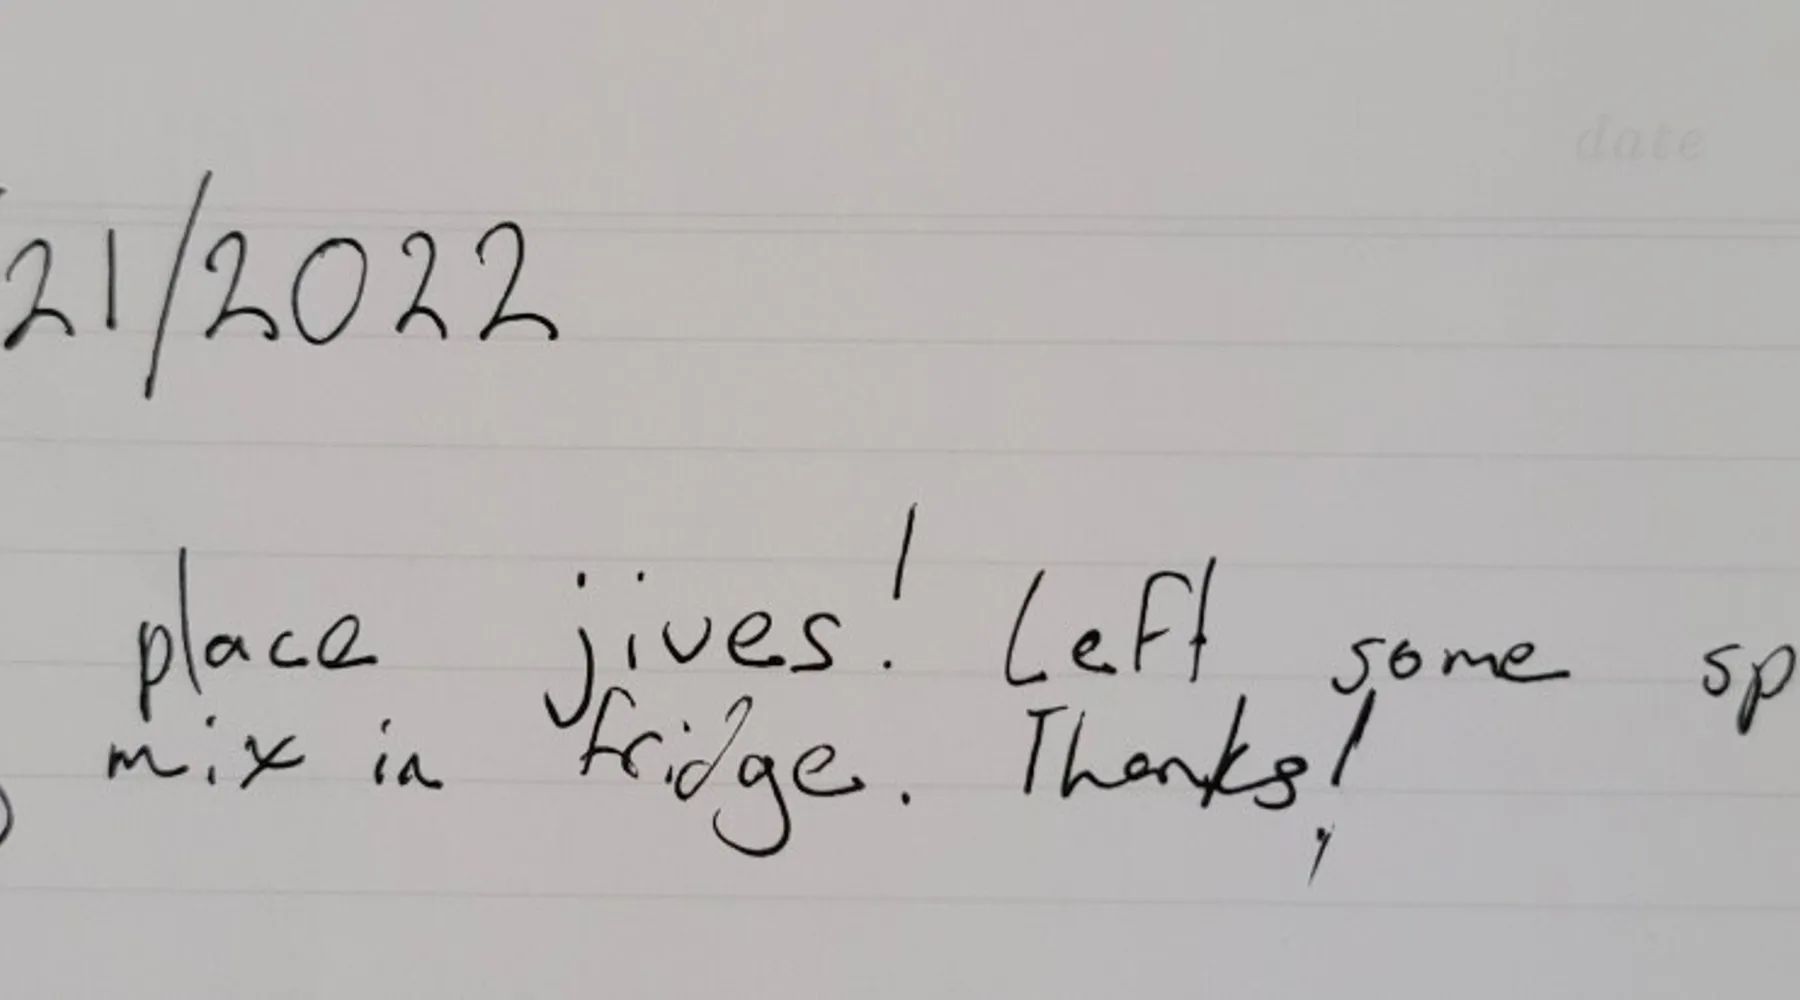 date
21/2022
place jives! Left some sp
mix in fridge. Thanks!